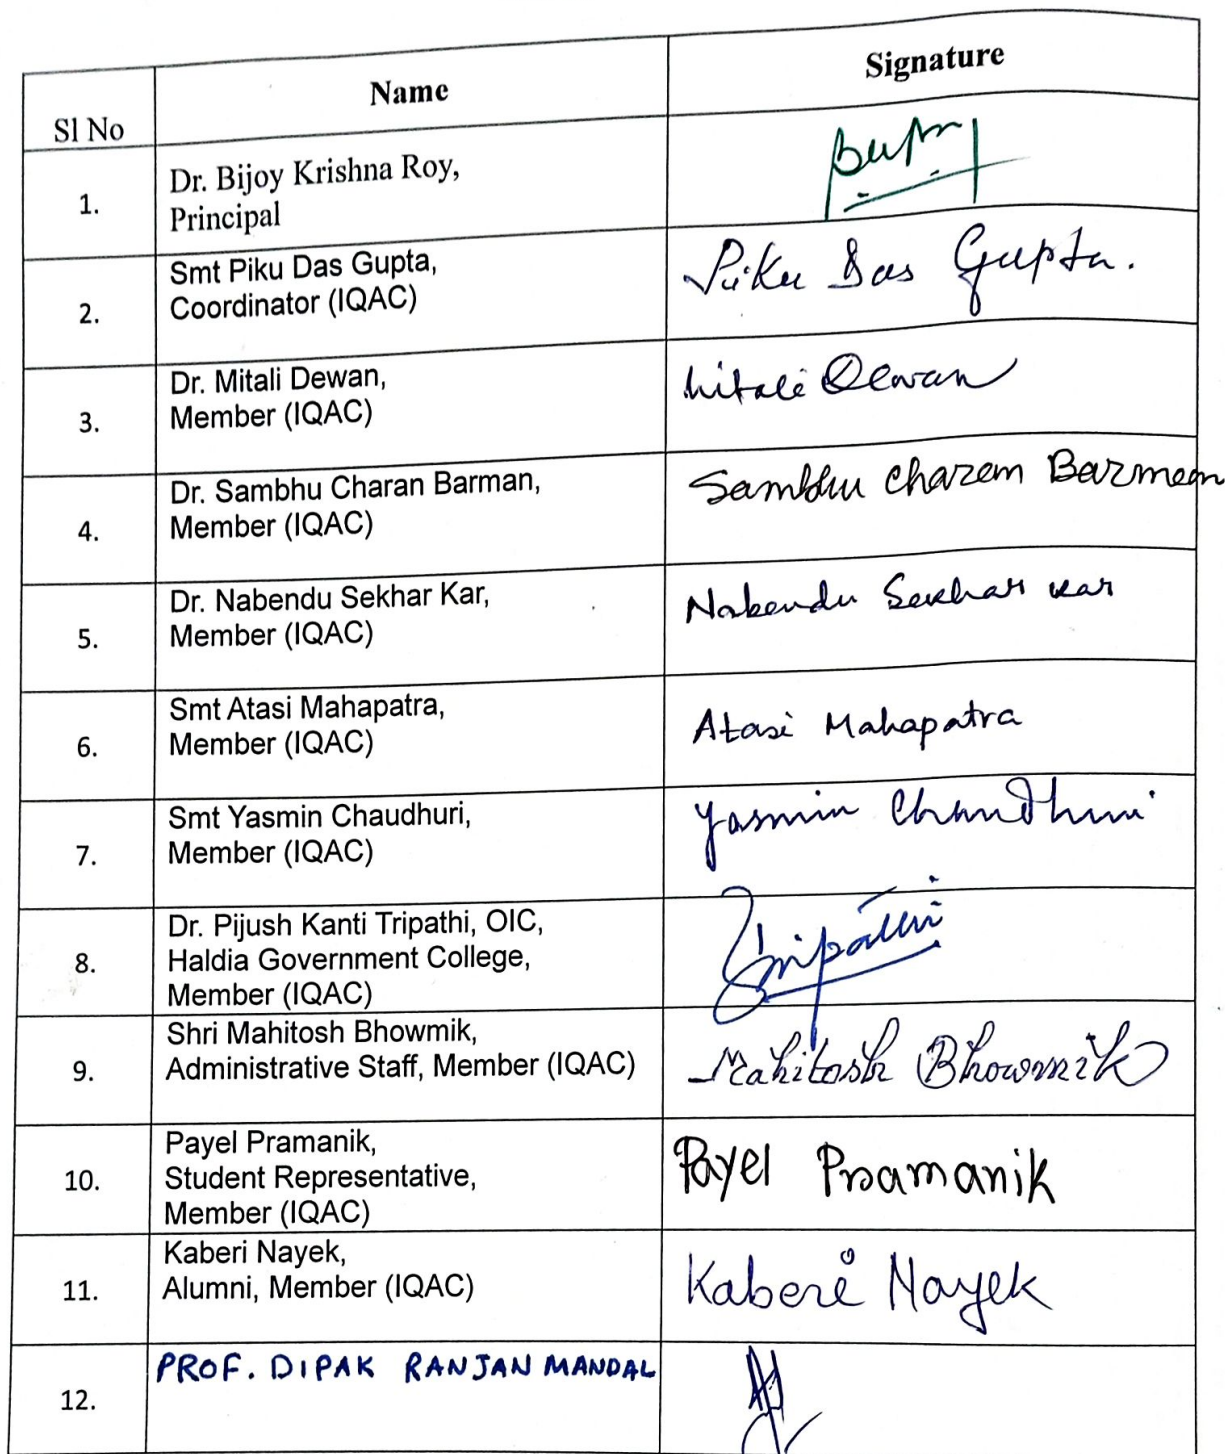 Sl No
Name
Signature
1.
Dr. Bijoy Krishna Roy,
Principal
2.
Smt Piku Das Gupta,
Coordinator (IQAC)
Piku Das Gupta.
3.
Dr. Mitali Dewan,
Member (IQAC)
Mitali Dewan
4.
Dr. Sambhu Charan Barman,
Member (IQAC)
Sambhu Charan Barman
5.
Dr. Nabendu Sekhar Kar,
Member (IQAC)
Nabendu Sekhar Kar
6.
Smt Atasi Mahapatra,
Member (IQAC)
Atasi Mahapatra
7.
Smt Yasmin Chaudhuri,
Member (IQAC)
Yasmin Chaudhuri
8.
Dr. Pijush Kanti Tripathi, OIC,
Haldia Government College,
Member (IQAC)
Tripathi
9.
Shri Mahitosh Bhowmik,
Administrative Staff, Member (IQAC)
Mahitosh Bhowmik
10.
Payel Pramanik,
Student Representative,
Member (IQAC)
Payel Pramanik
11.
Kaberi Nayek,
Alumni, Member (IQAC)
Kaberi Nayek
12.
PROF. DIPAK RANJAN MANDAL